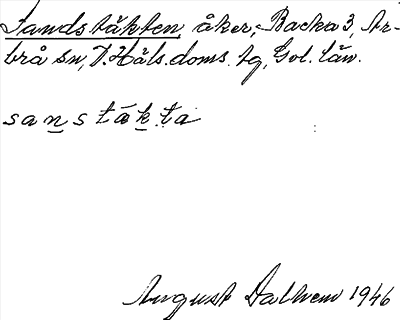 Sandstäkten åker, Backa 3, Ar-
brå sn, V. Häls. doms. tg, Gvl. län.
sanstäkta
August Dalhem 1946